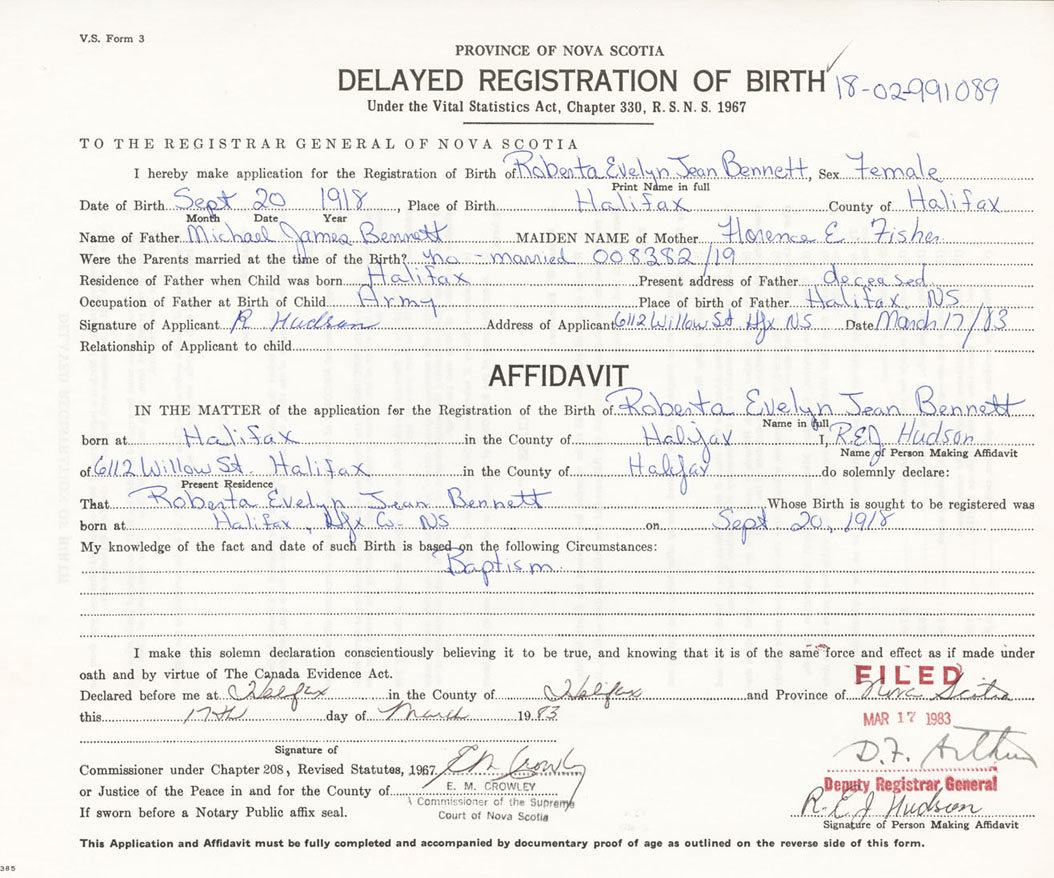 V.S. Form 3
PROVINCE OF NOVA SCOTIA
DELAYED REGISTRATION OF BIRTH 18-02-991089
Under the Vital Statistics Act, Chapter 330, R.S.N.S. 1967
TO THE REGISTRAR GENERAL OF NOVA SCOTIA
I hereby make application for the Registration of Birth of Roberta Evelyn Jean Bennett, Sex Female
Print Name in full
Date of Birth Sept 20 1918, Place of Birth Halifax County of Halifax
Month Date Year
Name of Father Michael James Bennett MAIDEN NAME of Mother Florence E. Fisher
Were the Parents married at the time of the Birth? no - married 008382/19
Residence of Father when Child was born Halifax Present address of Father deceased
Occupation of Father at Birth of Child Army Place of birth of Father Halifax NS
Signature of Applicant R Hudson Address of Applicant 6112 Willow St Hfx NS Date March 17/83
Relationship of Applicant to child
AFFIDAVIT
IN THE MATTER of the application for the Registration of the Birth of Roberta Evelyn Jean Bennett
Name in full
born at Halifax in the County of Halifax I, R.E.J Hudson
Name of Person Making Affidavit
of 6112 Willow St. Halifax in the County of Halifax do solemnly declare:
Present Residence
That Roberta Evelyn Jean Bennett Whose Birth is sought to be registered was
born at Halifax, Hfx Co- NS on Sept 20, 1918
My knowledge of the fact and date of such Birth is based on the following Circumstances:
Baptism.
I make this solemn declaration conscientiously believing it to be true, and knowing that it is of the same force and effect as if made under
oath and by virtue of The Canada Evidence Act.
FILED
Declared before me at Halifax in the County of Halifax and Province of Nova Scotia
this 17th day of March 1983
MAR 17 1983
Signature of
D.F. Arthur
Commissioner under Chapter 208, Revised Statutes, 1967 E M Crowley
or Justice of the Peace in and for the County of E. M. CROWLEY
Deputy Registrar General
A Commissioner of the Supreme
R.E.J Hudson
If sworn before a Notary Public affix seal.
Court of Nova Scotia
Signature of Person Making Affidavit
This Application and Affidavit must be fully completed and accompanied by documentary proof of age as outlined on the reverse side of this form.
385